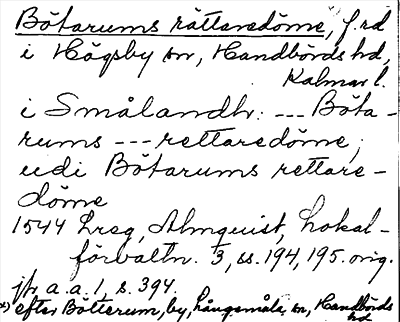 Bötarums rättaredöme, f.rd
i Högsby sn, Handbörds hd,
Kalmar l.
i Smålandh: --- Böta-
rums --- rettaredöme;
udi Bötarums rettare-
döme
1544 Lreg, Almquist, Lokal-
förvaltn. 3, ss. 194, 195. orig.
jfr a.a. 1, s. 394.
*) efter Bötterum, by, Långemåla sn, Handbörds
hd